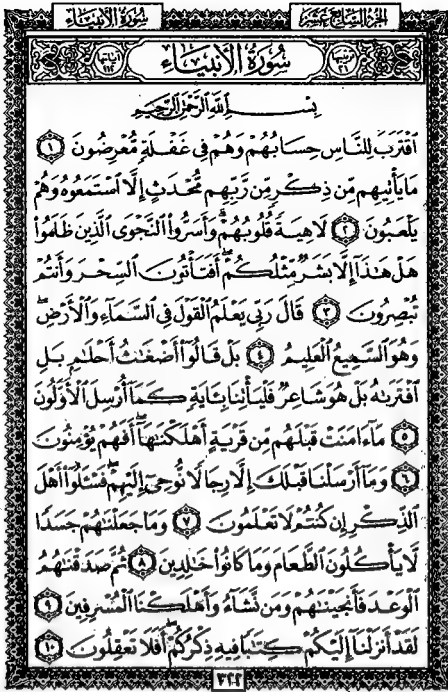 سُورَةُ الأَنبِيَاءِ
الجُزءُ السَّابِعَ عَشَرَ
سُورَةُ الأَنبِيَاءِ
بِسْمِ اللَّهِ الرَّحْمَٰنِ الرَّحِيمِ
ٱقْتَرَبَ لِلنَّاسِ حِسَابُهُمْ وَهُمْ فِى غَفْلَةٍ مُّعْرِضُونَ ١
مَا يَأْتِيهِم مِّن ذِكْرٍ مِّن رَّبِّهِم مُّحْدَثٍ إِلَّا ٱسْتَمَعُوهُ وَهُمْ
يَلْعَبُونَ ٢ لَاهِيَةً قُلُوبُهُمْ ۗ وَأَسَرُّوا۟ ٱلنَّجْوَى ٱلَّذِينَ ظَلَمُوا۟
هَلْ هَٰذَآ إِلَّا بَشَرٌ مِّثْلُكُمْ ۖ أَفَتَأْتُونَ ٱلسِّحْرَ وَأَنتُمْ
تُبْصِرُونَ ٣ قَالَ رَبِّى يَعْلَمُ ٱلْقَوْلَ فِى ٱلسَّمَآءِ وَٱلْأَرْضِ ۖ
وَهُوَ ٱلسَّمِيعُ ٱلْعَلِيمُ ٤ بَلْ قَالُوٓا۟ أَضْغَٰثُ أَحْلَٰمٍۭ بَلِ
ٱفْتَرَىٰهُ بَلْ هُوَ شَاعِرٌ فَلْيَأْتِنَا بِـَٔايَةٍ كَمَآ أُرْسِلَ ٱلْأَوَّلُونَ
٥ مَآ ءَامَنَتْ قَبْلَهُم مِّن قَرْيَةٍ أَهْلَكْنَٰهَآ ۖ أَفَهُمْ يُؤْمِنُونَ
٦ وَمَآ أَرْسَلْنَا قَبْلَكَ إِلَّا رِجَالًا نُّوحِىٓ إِلَيْهِمْ ۖ فَسْـَٔلُوٓا۟ أَهْلَ
ٱلذِّكْرِ إِن كُنتُمْ لَا تَعْلَمُونَ ٧ وَمَا جَعَلْنَٰهُمْ جَسَدًا
لَّا يَأْكُلُونَ ٱلطَّعَامَ وَمَا كَانُوا۟ خَٰلِدِينَ ٨ ثُمَّ صَدَقْنَٰهُمُ
ٱلْوَعْدَ فَأَنجَيْنَٰهُمْ وَمَن نَّشَآءُ وَأَهْلَكْنَا ٱلْمُسْرِفِينَ ٩
لَقَدْ أَنزَلْنَآ إِلَيْكُمْ كِتَٰبًا فِيهِ ذِكْرُكُمْ ۖ أَفَلَا تَعْقِلُونَ ١٠
٣٢٢